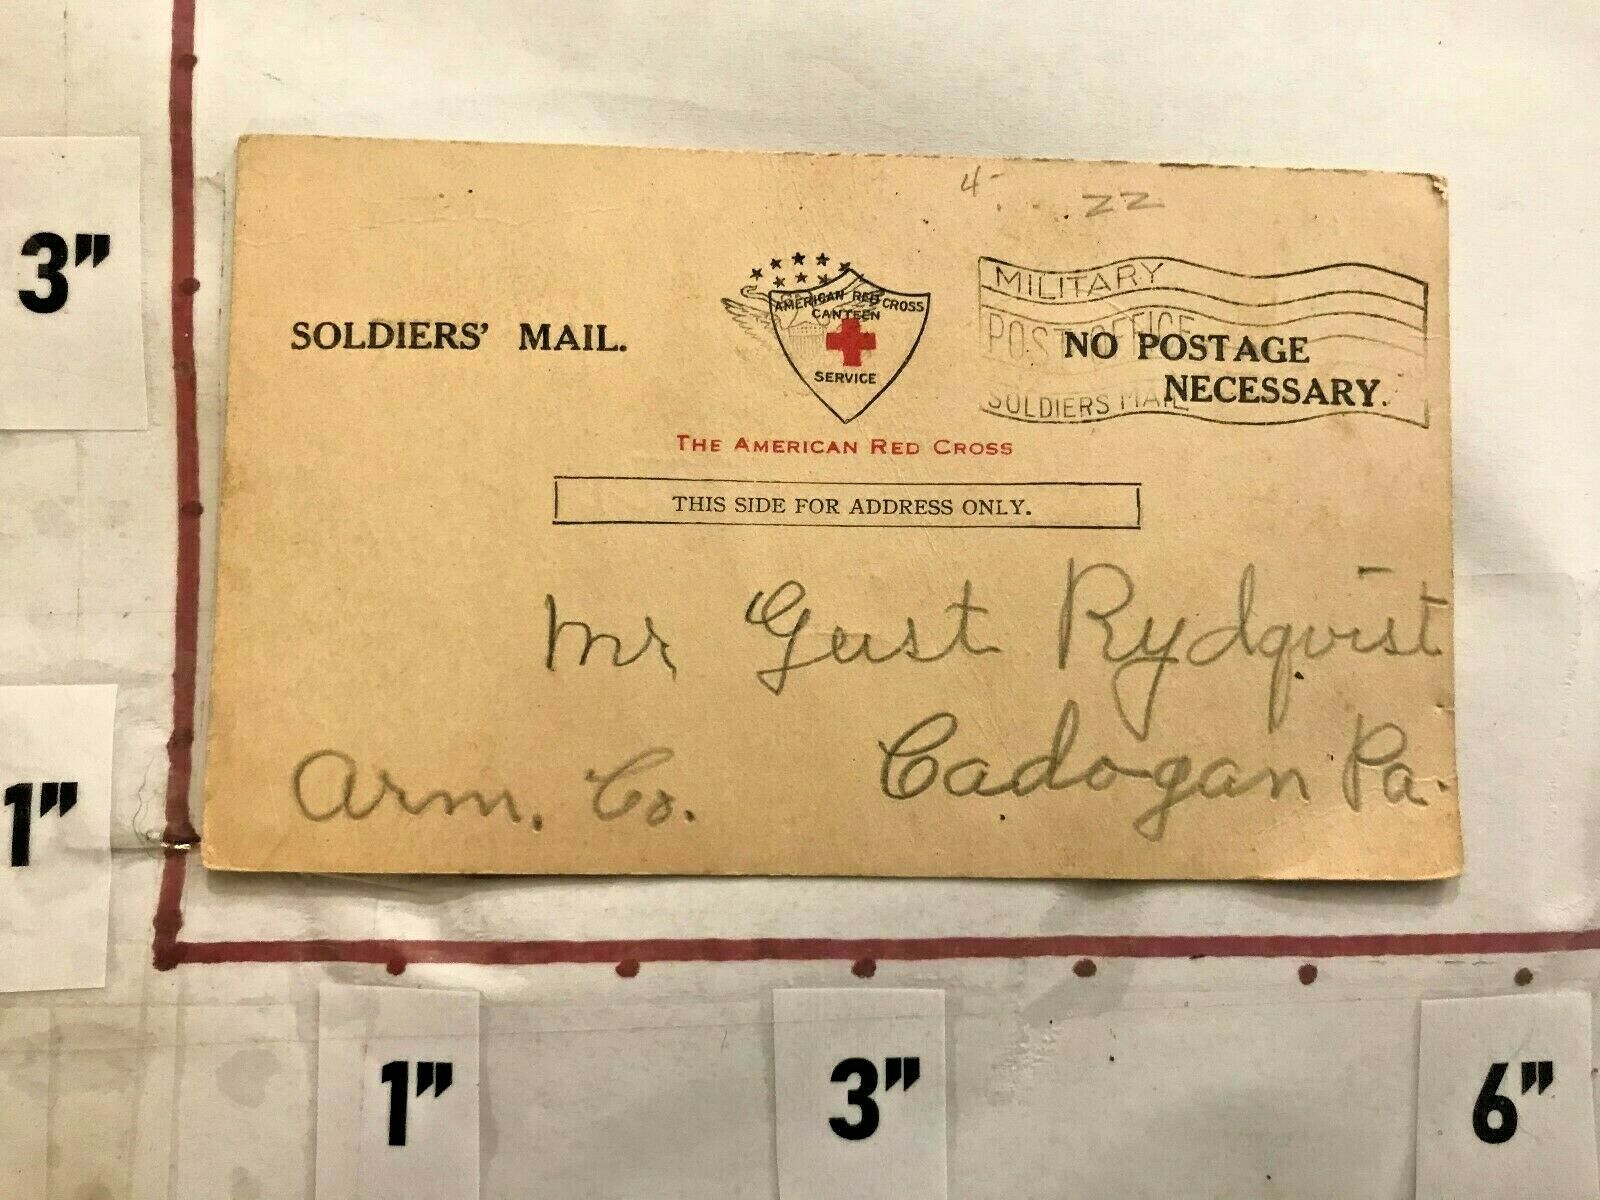 4
ZZ
AMERICAN RED CROSS
CANTEEN
SERVICE
SOLDIERS' MAIL.
MILITARY
POST OFFICE
SOLDIERS MAIL
NO POSTAGE
NECESSARY.
THE AMERICAN RED CROSS
THIS SIDE FOR ADDRESS ONLY.
Mr Gust Rydqvist
Cadogan Pa.
Arm. Co.
3"
1"
1"
3"
6"